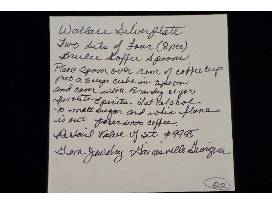 Wallace Silverplate
Two Sets of Four (8pcs)
Brulee Coffee Spoons
Place Spoon over rim of coffee cup
put a sugar cube in spoon
and cover with Brandy or
- Spirits - that alcohol
to melt sugar and when flame
is out pour into coffee
Retail Value of set $99.95
Gem Jewelry Gainesville Georgia
62